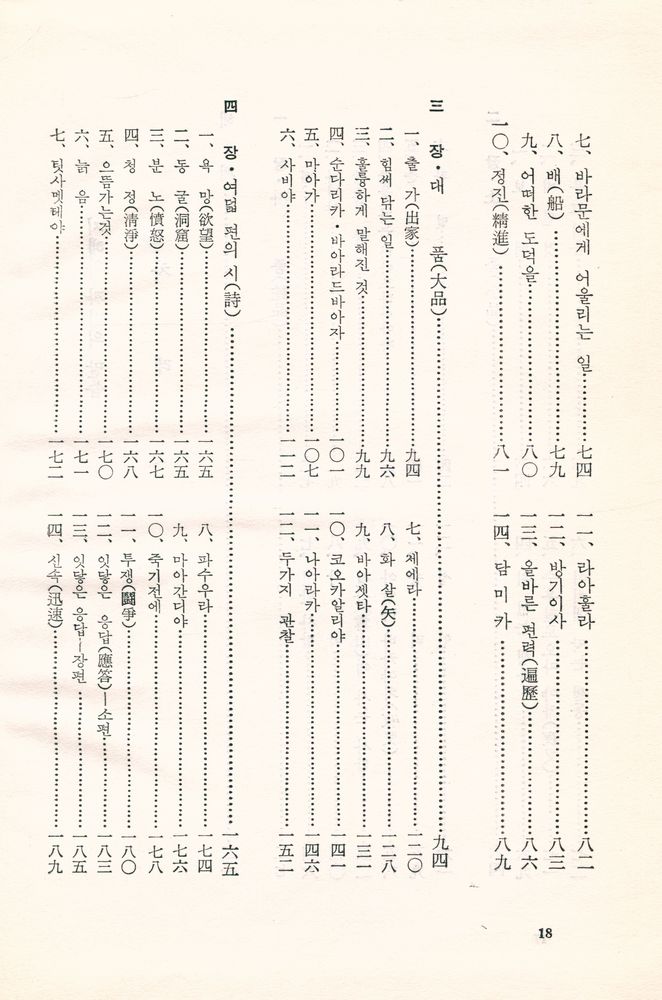 七、바라문에게 어울리는 일……七四
八、배(船)……七九
九、어떠한 도덕을……八〇
一〇、정진(精進)……八一
一一、라아훌라……八二
一二、방기이사……八三
一三、올바른 편력(遍歷)……八六
一四、담미카……八九
三장・대 품(大品)……九四
一、출 가(出家)……九四
二、힘써 닦는 일……九六
三、훌륭하게 말해진 것……九九
四、순다리카・바아라드바아자……一〇一
五、마아가……一〇七
六、사비야……一一二
七、제에라……一二〇
八、화 살(矢)……一二八
九、바아셋타……一三一
一〇、코오카알리야……一四一
一一、나아라카……一四六
一二、두가지 관찰……一五二
四장・여덟 편의 시(詩)……一六五
一、욕 망(欲望)……一六五
二、동 굴(洞窟)……一六五
三、분 노(憤怒)……一六七
四、청 정(淸淨)……一六八
五、으뜸가는것……一七〇
六、늙 음……一七一
七、팃사멧테야……一七二
八、파수우라……一七四
九、마아간디야……一七六
一〇、죽기전에……一七八
一一、투쟁(鬪爭)……一八〇
一二、잇닿은 응답(應答)―소편……一八三
一三、잇닿은 응답―장편……一八五
一四、신속(迅速)……一八九
18